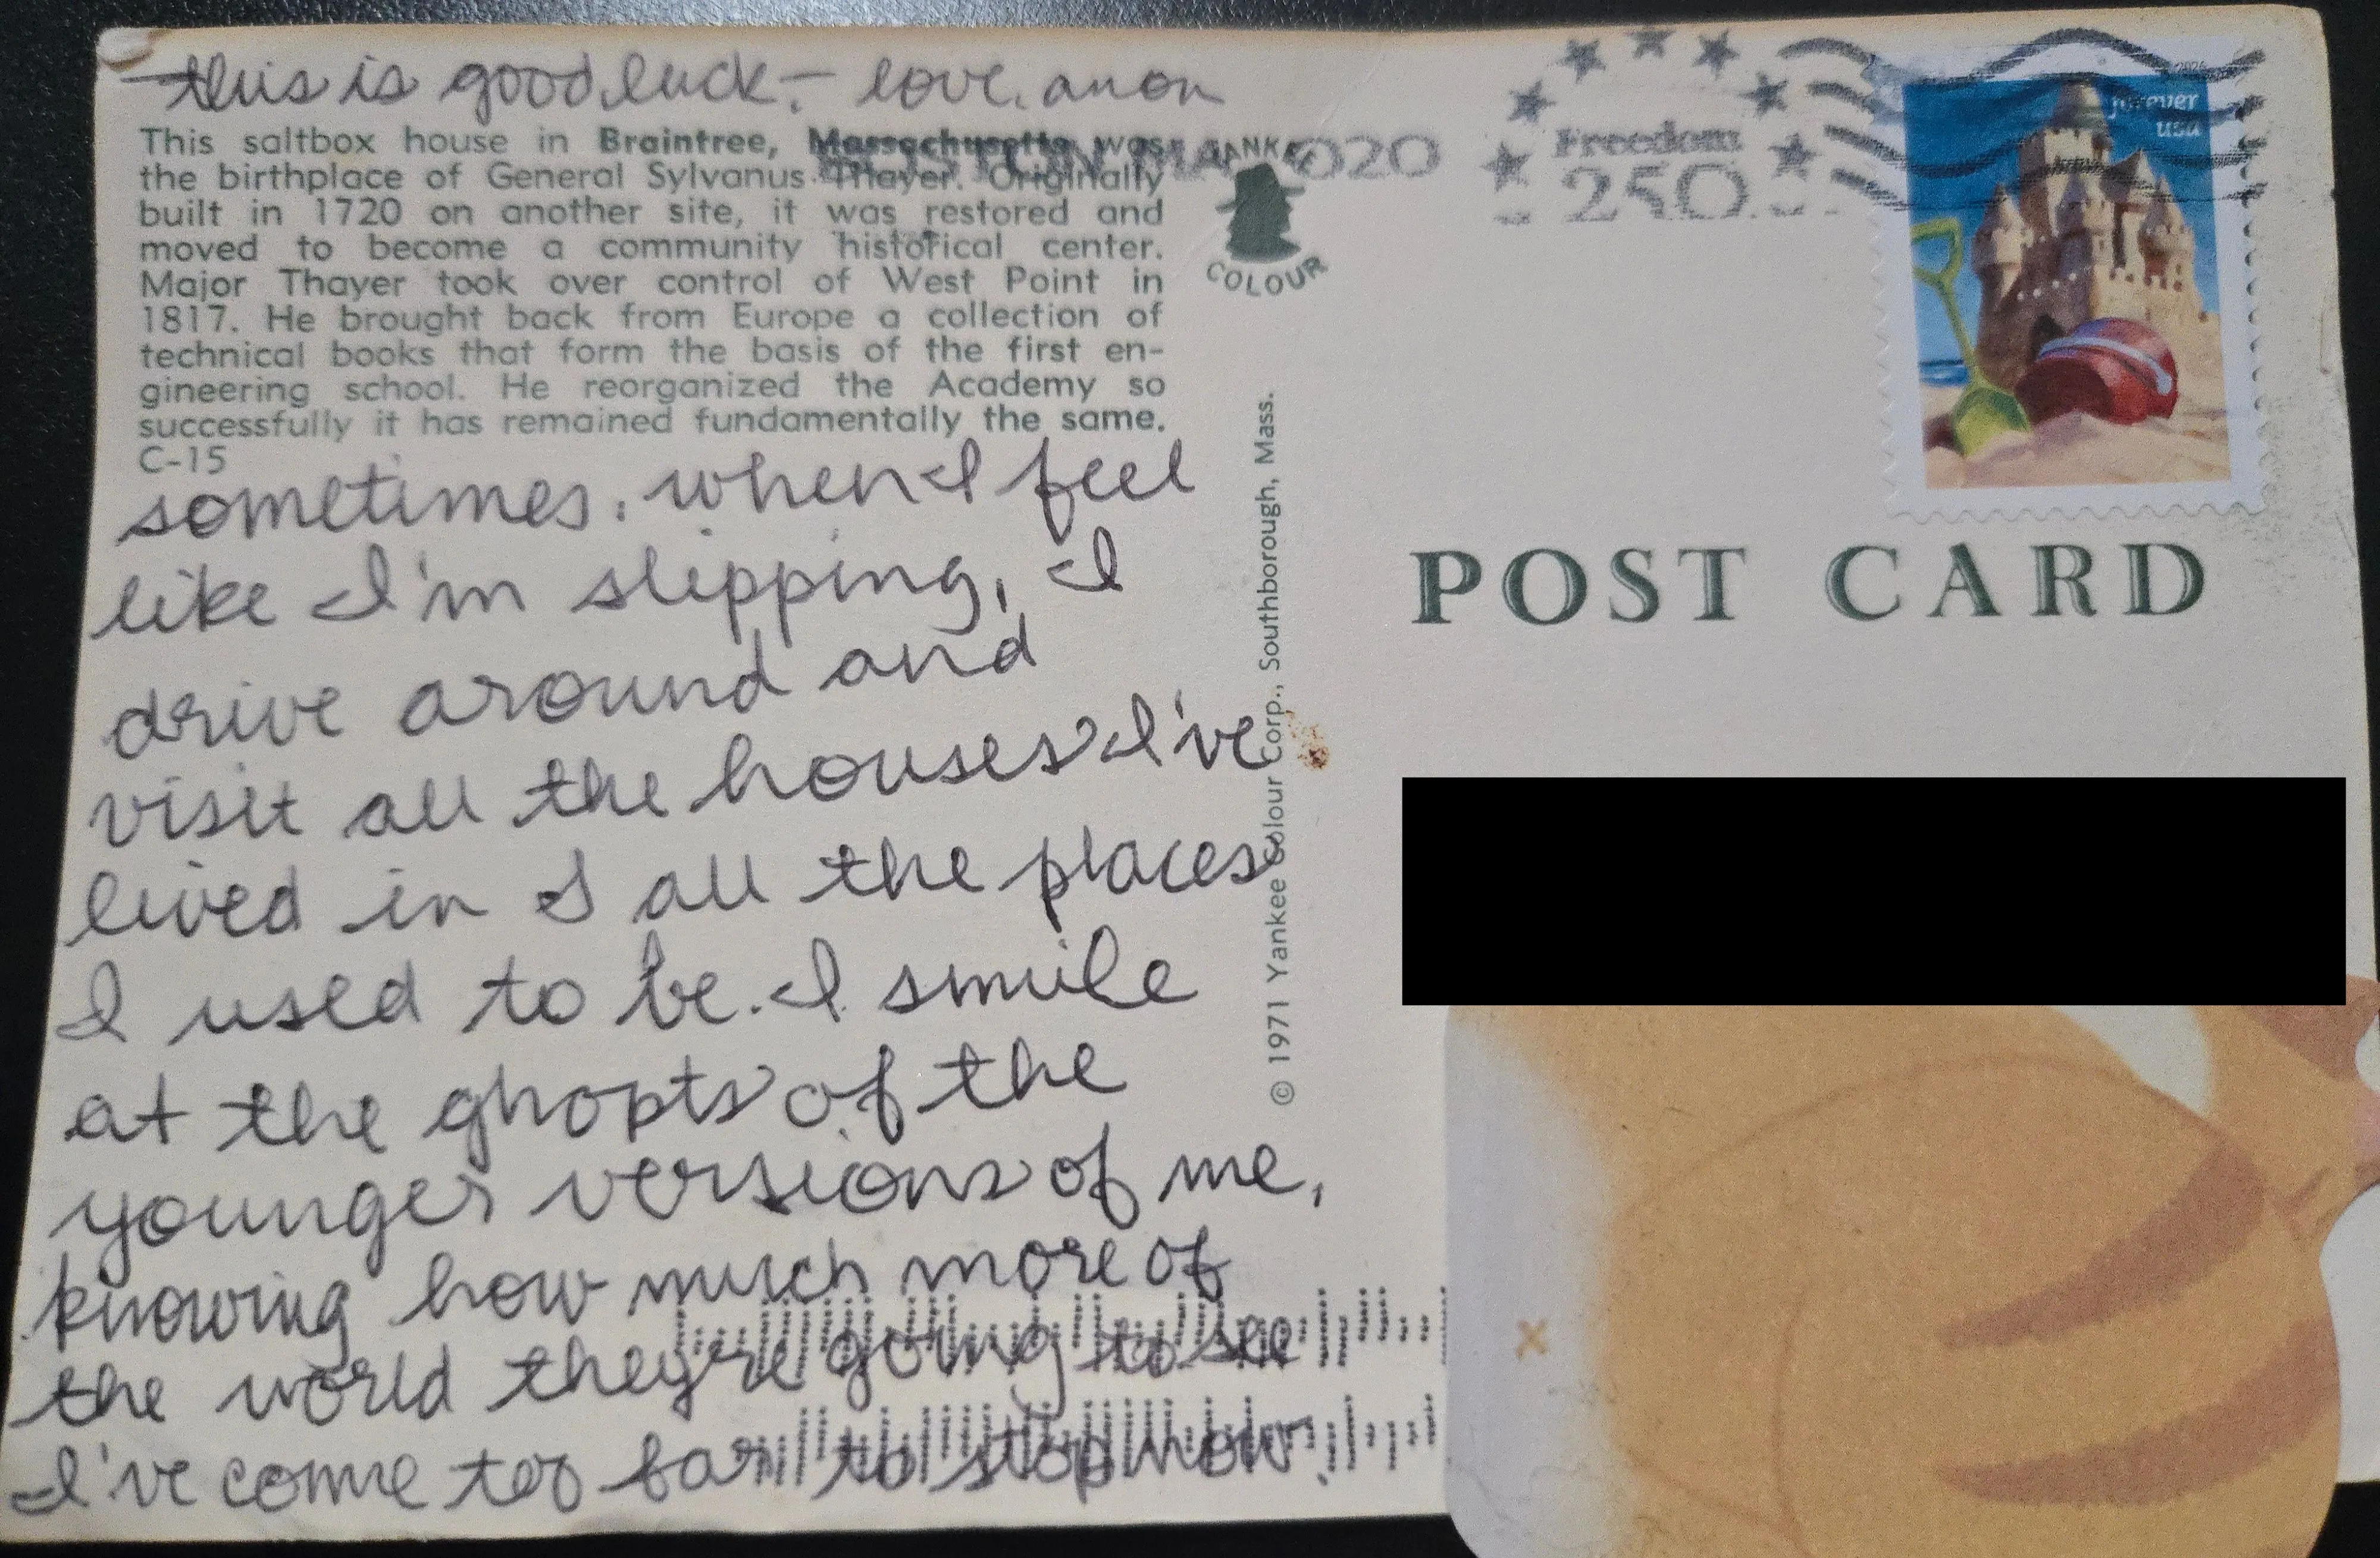 this is good luck. - love, anon
This saltbox house in Braintree, Massachusetts was
the birthplace of General Sylvanus Thayer. Originally
built in 1720 on another site, it was restored and
moved to become a community historical center.
Major Thayer took over control of West Point in
1817. He brought back from Europe a collection of
technical books that form the basis of the first en-
gineering school. He reorganized the Academy so
successfully it has remained fundamentally the same.
C-15
sometimes, when I feel
like I'm slipping, I
drive around and
visit all the houses I've
lived in & all the places
I used to be. I smile
at the ghosts of the
younger versions of me,
knowing how much more of
the world they're going to see
I've come too far to stop now.
YANKEE
COLOUR
© 1971 Yankee Colour Corp., Southborough, Mass.
BOSTON MA 020
Freedom
250
forever
usa
POST CARD